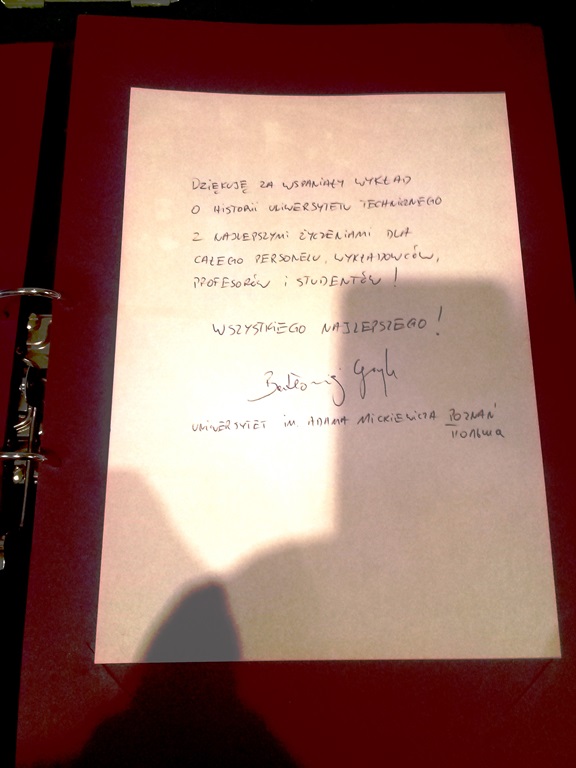 DZIĘKUJĘ ZA WSPANIAŁY WYKŁAD
O HISTORII UNIWERSYTETU TECHNICZNEGO
Z NAJLEPSZYMI ŻYCZENIAMI DLA
CAŁEGO PERSONELU, WYKŁADOWCÓW,
PROFESORÓW I STUDENTÓW!
WSZYSTKIEGO NAJLEPSZEGO!
UNIWERSYTET IM. ADAMA MICKIEWICZA POZNAŃ
ПОЛЬША